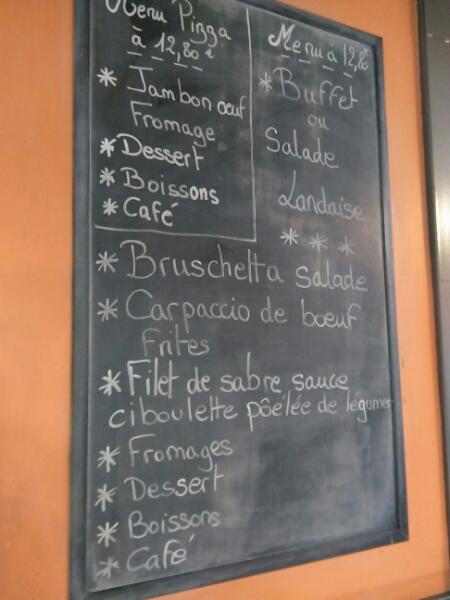 Menu Pizza
à 12,80 €
* Jambon oeuf
Fromage
* Dessert
* Boissons
* Café
Menu à 12,80€
* Buffet
ou
Salade
Landaise
* * *
* Bruschetta salade
* Carpaccio de boeuf
frites
* Filet de sabre sauce
ciboulette pôélée de légumes
* Fromages
* Dessert
* Boissons
* Café